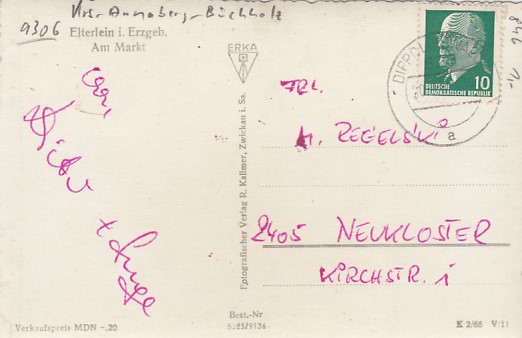 Krs. Annaberg-Buchholz
9306
Elterlein i. Erzgeb.
Am Markt
ERKA
DEUTSCHE
DEMOKRATISCHE REPUBLIK
10
DIPPOL
a
FRL.
H. REGELSKI
2405 NEUKLOSTER
KIRCHSTR. 1
Fotografischer Verlag R. Kallmer, Zwickau i. Sa.
Best.-Nr
Verkaufspreis MDN -,20
K 2/66 V/11